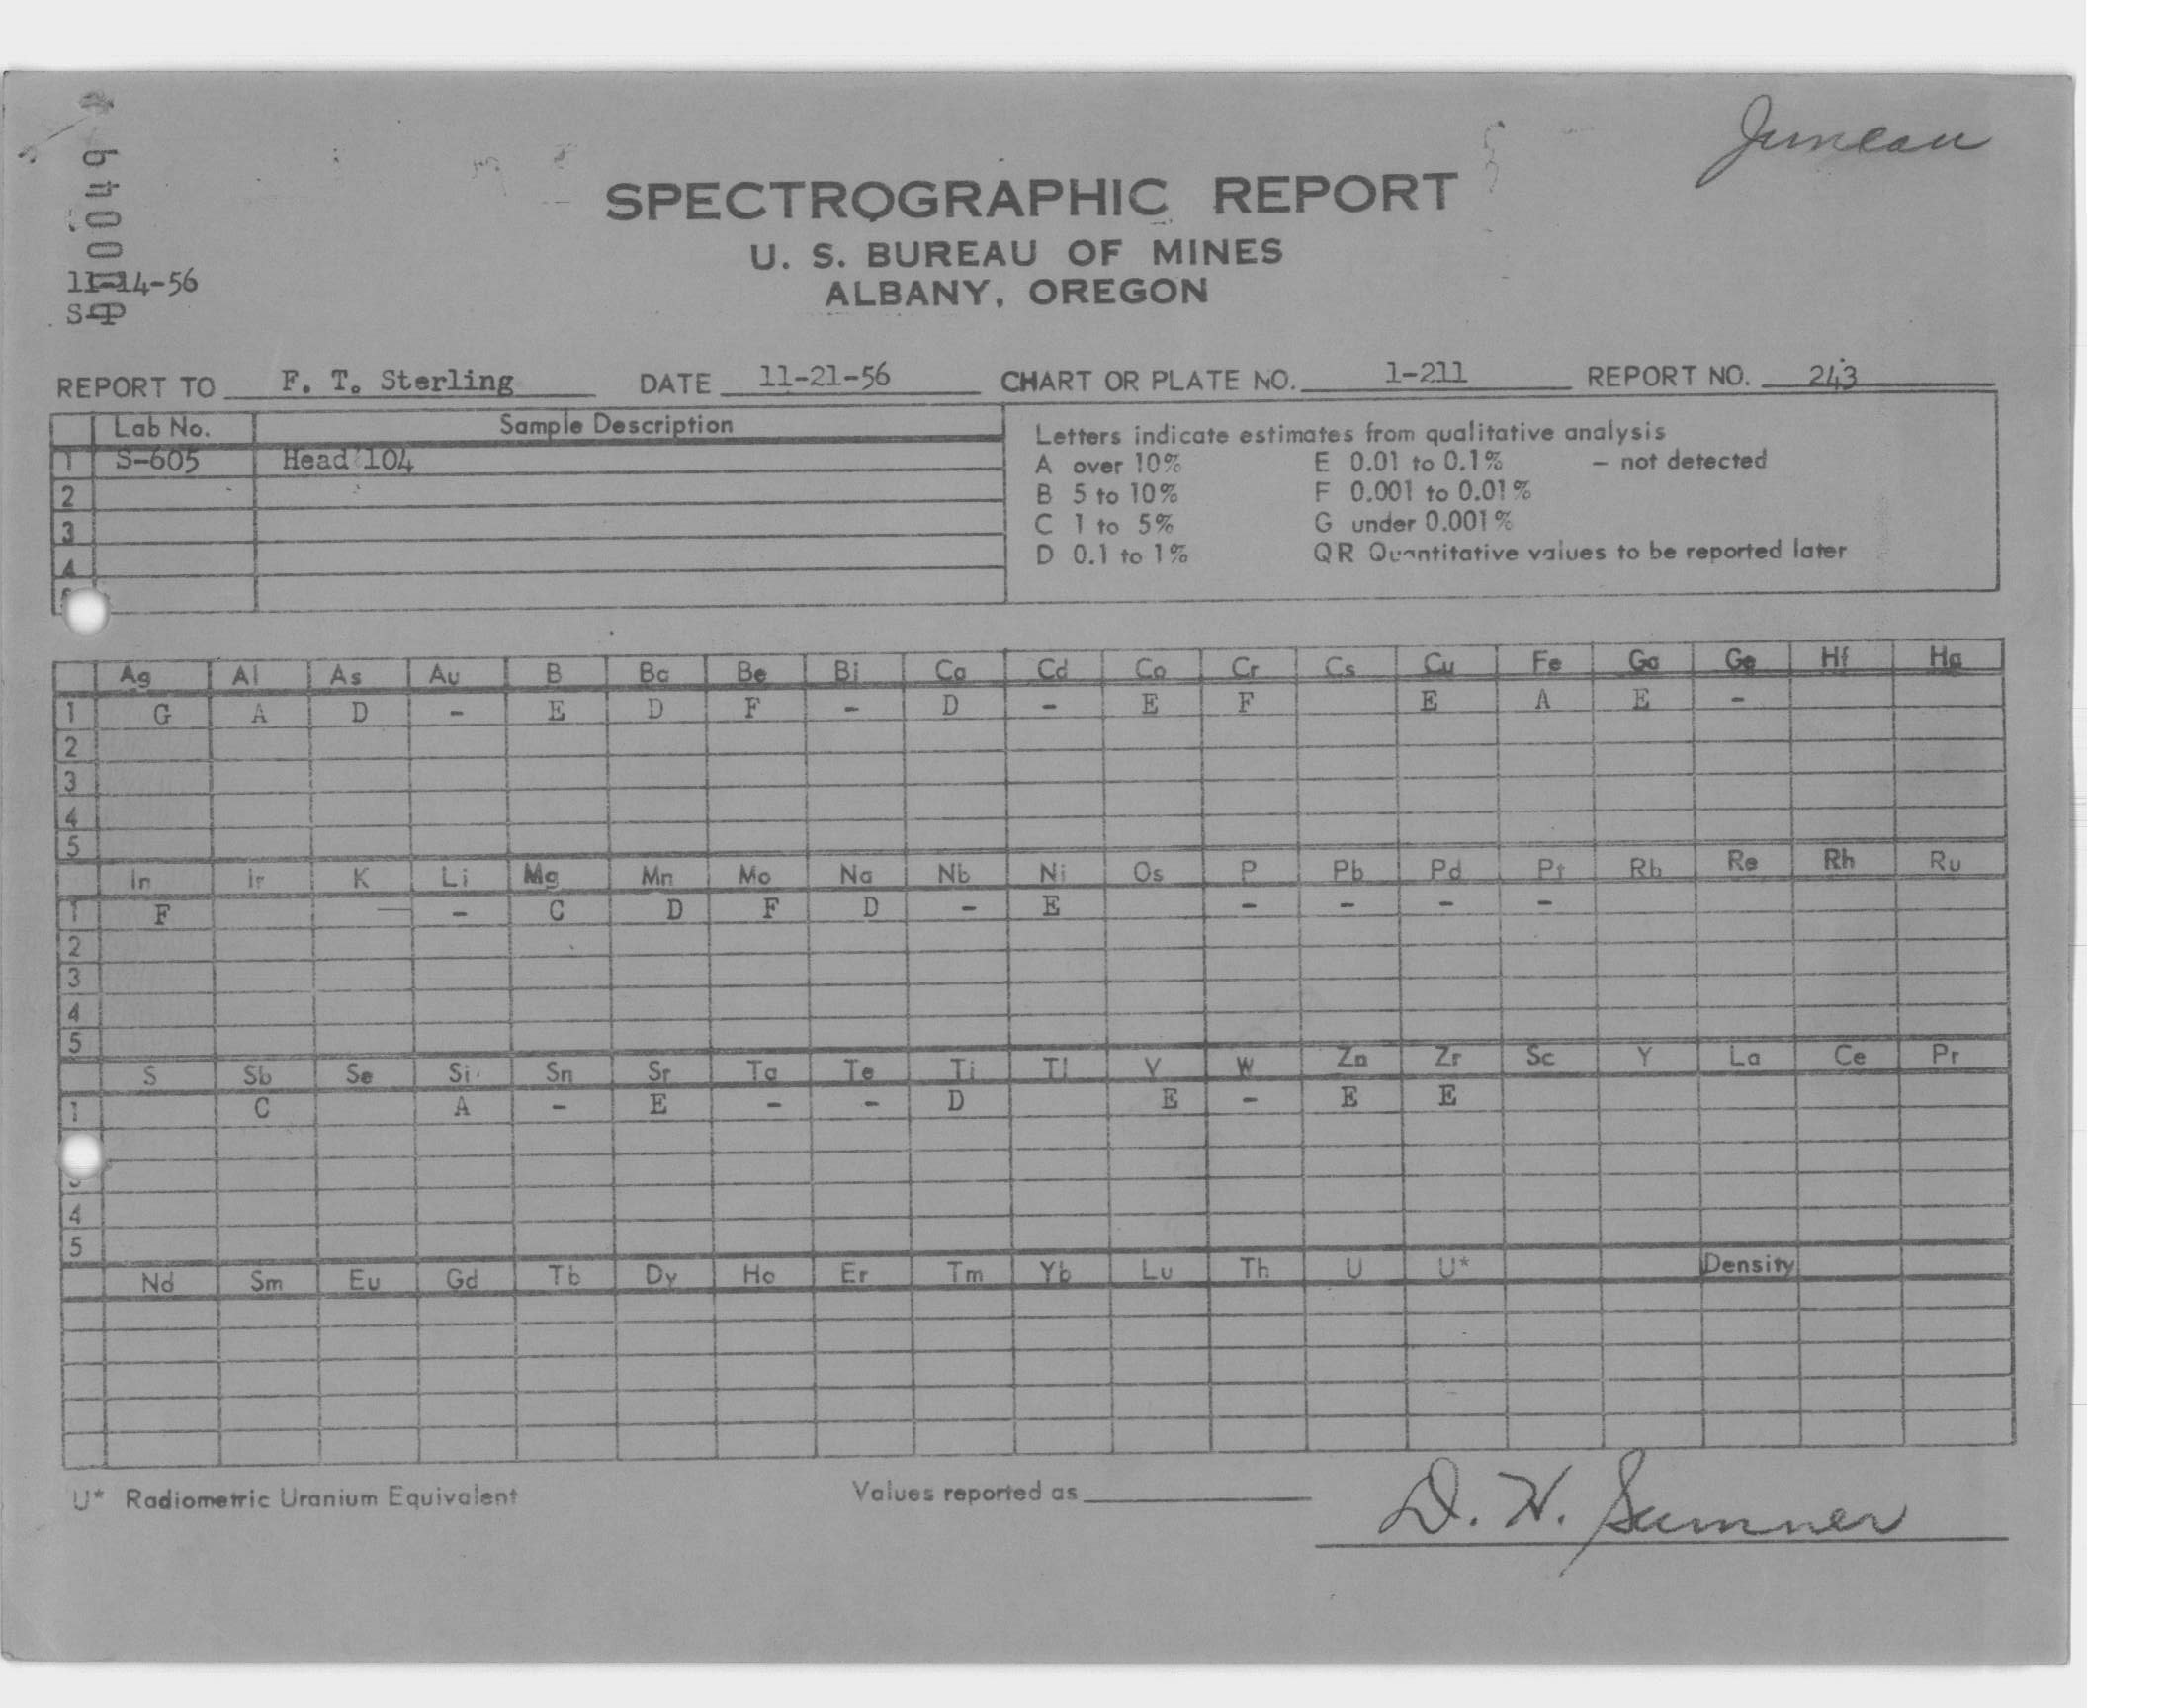 Juneau
6400
SPECTROGRAPHIC REPORT
U. S. BUREAU OF MINES
ALBANY, OREGON
11-14-56
REPORT TO F. T. Sterling DATE 11-21-56 CHART OR PLATE NO. 1-211 REPORT NO. 243
Lab No. Sample Description
1 S-605 Head 104
2
3
4
Letters indicate estimates from qualitative analysis
A over 10% E 0.01 to 0.1% – not detected
B 5 to 10% F 0.001 to 0.01%
C 1 to 5% G under 0.001%
D 0.1 to 1% QR Quantitative values to be reported later
Ag Al As Au B Ba Be Bi Ca Cd Co Cr Cs Cu Fe Ga Ge Hf Hg
1 G A D - E D F - D - E F E A E -
2
3
4
5
In Ir K Li Mg Mn Mo Na Nb Ni Os P Pb Pd Pt Rb Re Rh Ru
1 F — - C D F D - E - - - -
2
3
4
5
S Sb Se Si Sn Sr Ta Te Ti Tl V W Zn Zr Sc Y La Ce Pr
1 C A - E - - D E - E E
3
4
5
Nd Sm Eu Gd Tb Dy Ho Er Tm Yb Lu Th U U* Density
U* Radiometric Uranium Equivalent Values reported as
D. H. Sumner